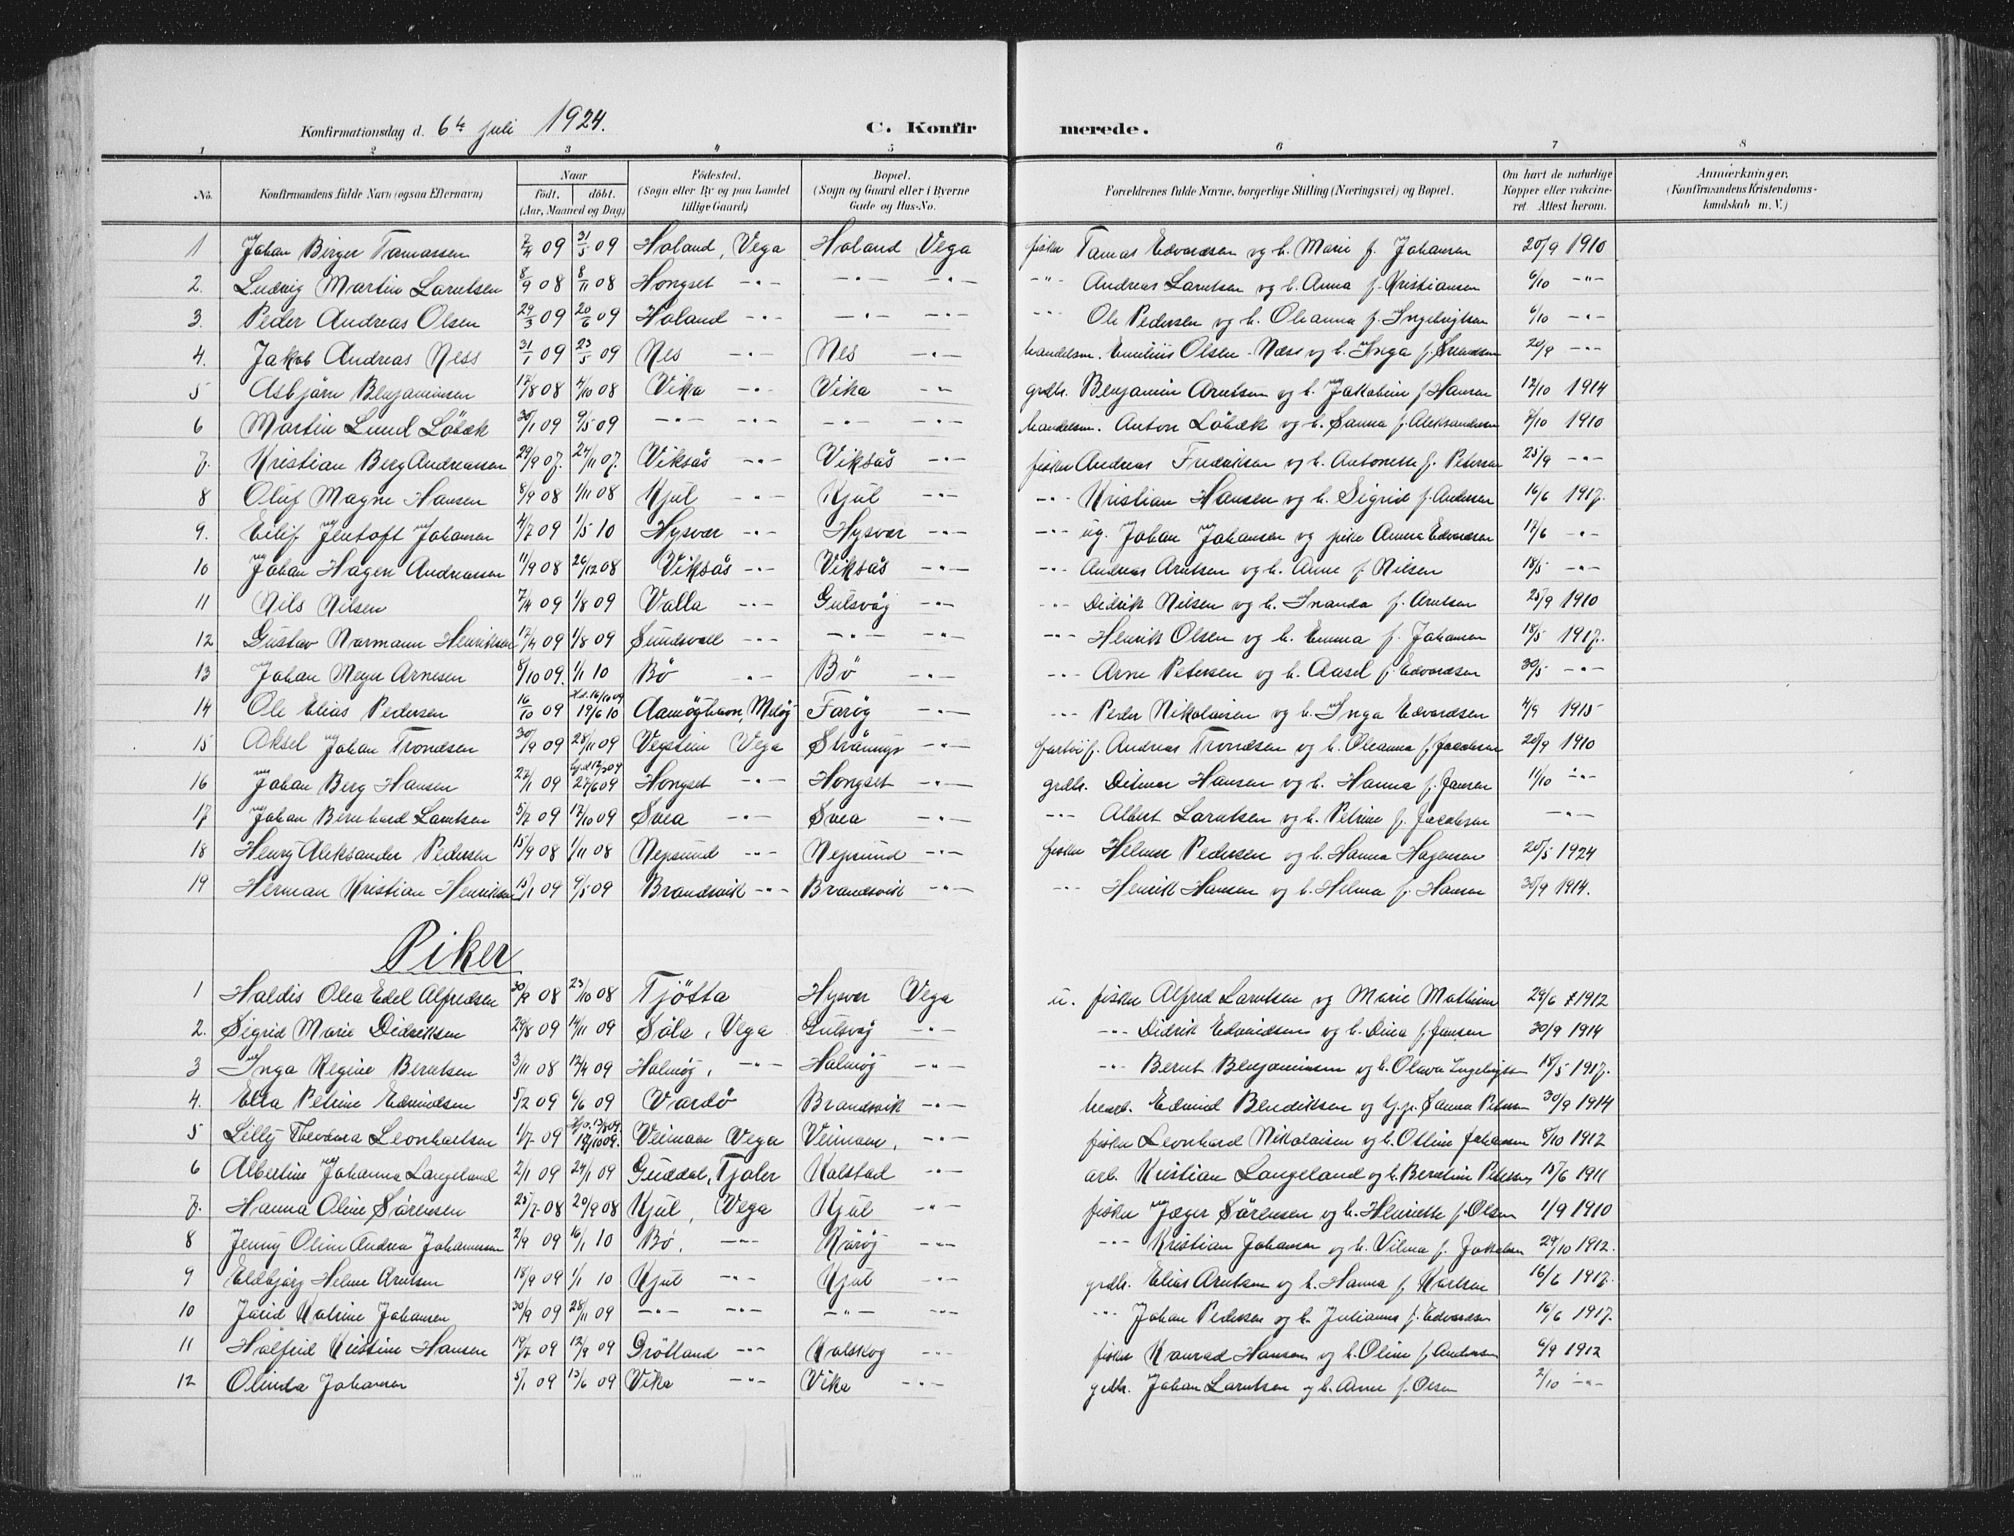 Konfirmationsdag d. 6te juli 1924. C. Konfir merede.
1 2 3 4 5 6 7 8
No. Konfirmandens fulde Navn (ogsaa Efternavn) Naar født. døbt. (Aar, Maaned og Dag) Fødested. (Sogn eller By og paa Landet tillige Gaard) Bopæl. (Sogn og Gaard eller i Byerne Gade og Hus-No. Forældrenes fulde Navne, borgerlige Stilling (Næringsvei) og Bopæl. Om havt de naturlige Kopper eller vakcineret Attest herom. Anmerkninger. (Konfirmandens Kristendomskundskab m. V.)
1 Johan Birger Tomassen 7/4 09 31/5 09 Holand, Vega Holand Vega fisker Tomas Edvardsen og h. Marie f. Johansen 20/9 1910
2. Ludvig Martin Larntsen 8/9 08 8/11 08 Hongset -"- -"- -"- -"- Andreas Larntsen og h. Anna f. Kristiansen 6/10 -"-
3. Peder Andreas Olsen 29/3 09 20/6 09 Holand -"- -"- -"- -"- Ole Pedersen og h. Oleanna f. Ingebrigtsen 6/10 -"-
4. Jakob Andreas Ness 31/1 09 23/5 09 Nes -"- Nes -"- handelsm. Emilius Olsen-Næss og h. Inga f. Svendsen 20/9 -"-
5 Asbjørn Benjaminsen 17/8 08 4/10 08 Vika -"- Vika -"- grdbr. Benjamin Arntsen og h. Jakobine f. Hansen 12/10 1914
6 Martin Lund Løbæk 30/1 09 9/5 09 -"- -"- -"- -"- handelsm. Anton Løbæk og h. Sanna f. Aleksandersen 8/10 1910
7. Kristian Berg Andreassen 29/9 07. 24/11 07. Viksås -"- Viksås -"- fisker Andreas Fredriksen og h. Antonette f. Petersen 25/9 -"-
8 Oluf Magne Hansen 8/9 08 1/11 08 Kjul -"- Kjul -"- -"- Kristian Hansen og h. Sigrid f. Andersen 16/6 1917.
9. Eilif Jentoft Johansen 4/7 09 1/5 10 Hysvær -"- Hysvær -"- -"- ug. Johan Johansen og pike Anna Edvardsen 17/6 -"-
10 Johan Hagen Andreassen 11/9 08 26/12 08 Viksås -"- Viksås -"- -"- Andreas Arntsen og h. Anne f. Nilsen 18/5 -"-
11 Nils Nilsen 7/4 09 1/8 09 Valla -"- Gulsvåg -"- -"- Didrik Nilsen og h. Inanda f. Arntsen 25/9 1910
12 Gustav Normann Henriksen 17/4 09 1/8 09 Sundsvoll -"- -"- -"- -"- Henrik Olsen og h. Emma f. Johansen 18/5 1917.
13 Johan Negn Arnesen 8/10 09. 1/1 10 Bø -"- Bø -"- -"- Arne Petersen og h. Aasel f. Edvardsen 30/5 -"-
14 Ole Elias Pedersen 16/10 09 19/6 10 Aamøyhavn, Meløy Forøy -"- -"- Peder Nikolaisen og h. Inga Edvardsen 4/9 1915
15 Aksel Johan Trondsen 30/9 09 28/11 09 Vegstein Vega -"- Andreas Trondsen og h. Oleanna f. Jacobsen 20/9 1910
16 Johan Berg Hansen 22/1 09 27/6 09 Hongset -"- Hongset -"- grdbr. Ditmar Hansen og h. Hanna f. Jansen 11/10 -"-
17 Johan Bernhard Larntsen 5/7 09 17/10 09 Svea -"- Svea -"- -"- Albert Larntsen og h. Petrine f. Jacobsen -"-
18 Henry Aleksander Pedersen 15/9 08 1/11 08 Nepsund -"- Nepsund -"- fisker Helmer Pedersen og h. Hanna Hagensen 20/5 1924
19 Herman Kristian Henriksen 15/1 09 9/5 09 Brandsvik -"- Brandsvik -"- -"- Henrik Hansen og h. Helma f. Hansen 30/9 1914.
Piker
1 Haldis Olea Edel Alfredsen 30/9 08 23/10 08 Tjøtta Hysvær Vega u. fisker Alfred Larntsen og Marie Mathisen 29/6 1912
2. Sigrid Marie Didriksen 29/8 09 14/11 09 Søla, Vega Gulsvåg -"- -"- Didrik Edvardsen og h. Dina f. Jansen 30/9 1914
3 Inga Regine Berntsen 3/11 08 12/4 09 Holmøy, -"- Holmøy -"- -"- Bernt Benjaminsen og h. Olava Ingebrigtsen 18/5 1917.
4. Elta Petrine Edmindsen 5/2 09 6/6 09 Vardø Brandsvik -"- Edmind Bendiksen og Sanna Petersen 30/9 1914
5 Lilly Theodora Leonhartsen 1/7 09 17/10 09 Veimoen Vega Veimoen, -"- fisker Leonhard Nikolaisen og h. Otline Johansen 8/10 1912
6 Albertine Johanna Langeland 2/1 09 24/1 09 Guddal, Fjaler Kolstad -"- arb. Kristian Langeland og h. Berntine Petersen 15/6 1911
7. Hanna Oline Sørensen 25/7 08 20/9 08 Kjul, Vega Kjul -"- fisker Jæger Sørensen og h. Henriette f. Olsen 1/9 1910
8 Jenny Oline Andrea Johannessen 2/9 09 16/1 10 Bø, -"- Rørøy -"- -"- Kristian Johansen og h. Vilma f. Jakobsen 24/10 1912.
9 Eldbjørg Helene Arntsen 18/9 09 1/1 10 Kjul -"- Kjul -"- grdbr. Elias Arntsen og h. Hanna f. Karlsen 16/6 1917.
10 Jorid Katrine Johansen 30/9 09 28/11 09 -"- -"- -"- -"- -"- Johan Pedersen og h. Julianna f. Edvardsen 16/6 1917.
11 Halfrid Kristine Hansen 19/7 09 12/9 09 Grøtland -"- Kalskog -"- fisker Konrad Hansen og h. Oline f. Andersen 6/9 1912
12 Olinda Johansen 5/1 09 13/6 09 Vika -"- Vika -"- grdbr. Johan Larntsen og h. Anne f. Olsen 2/10 -"-